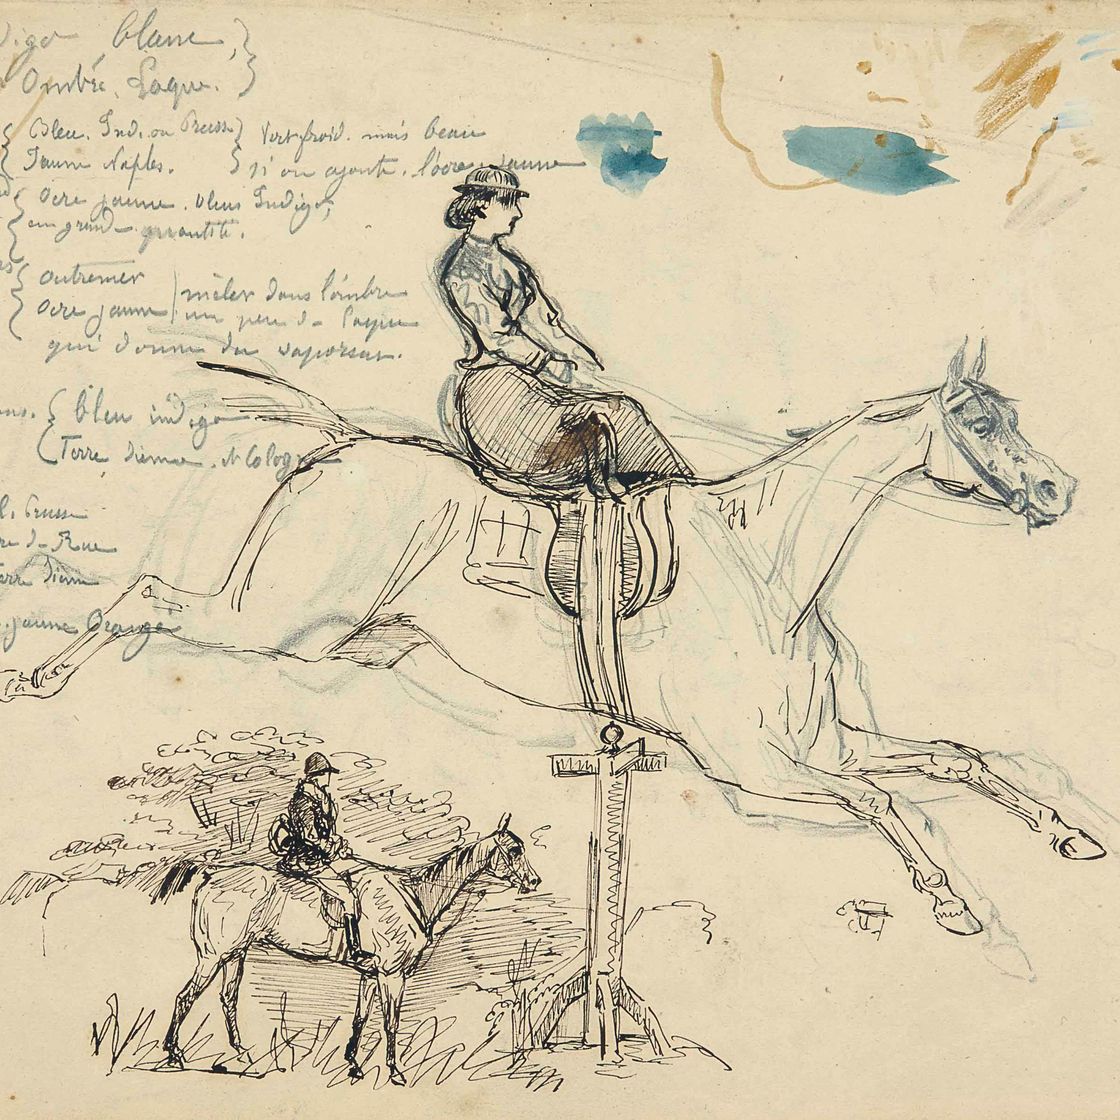 digo blanc,
Ombre. Laque.
Bleu. Ind. ou Prusse
Vert froid. mais beau
Jaune Naples.
si on ajoute. l'ocre jaune
Ocre jaune. bleu Indigo,
en grande quantité.
outremer
Ocre jaune
mêler dans l'ombre
un peu de laque
qui donne du vaporeux.
bleu indigo
Terre Sienne. et Cologne
Prusse
Terre Sienne
jaune Orange